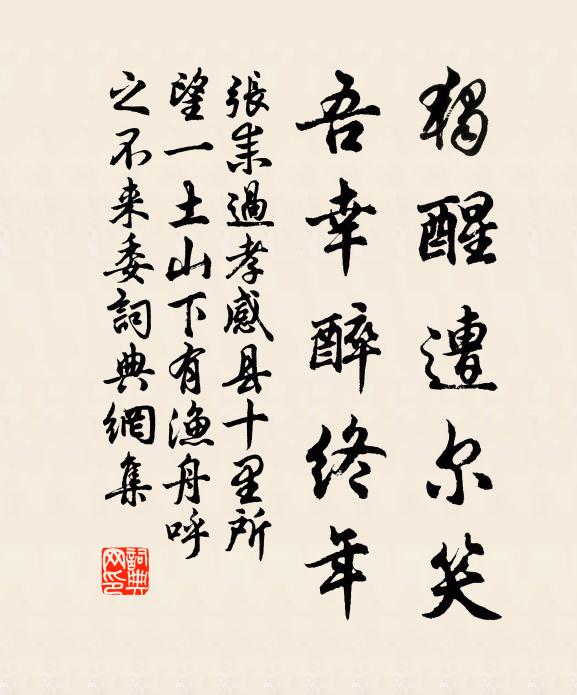 獨醒遭尔笑
吾幸醉終年
張耒過孝感县十里所
望一土山下有漁舟呼
之不来委詞典網集
詞典
网印